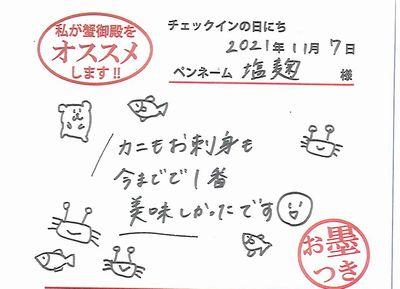 私が蟹御殿を
オススメ
します!!
チェックインの日にち
2021年11月7日
ペンネーム 塩麹 様
カニもお刺身も
今までで1番
美味しかったです
お墨
つき